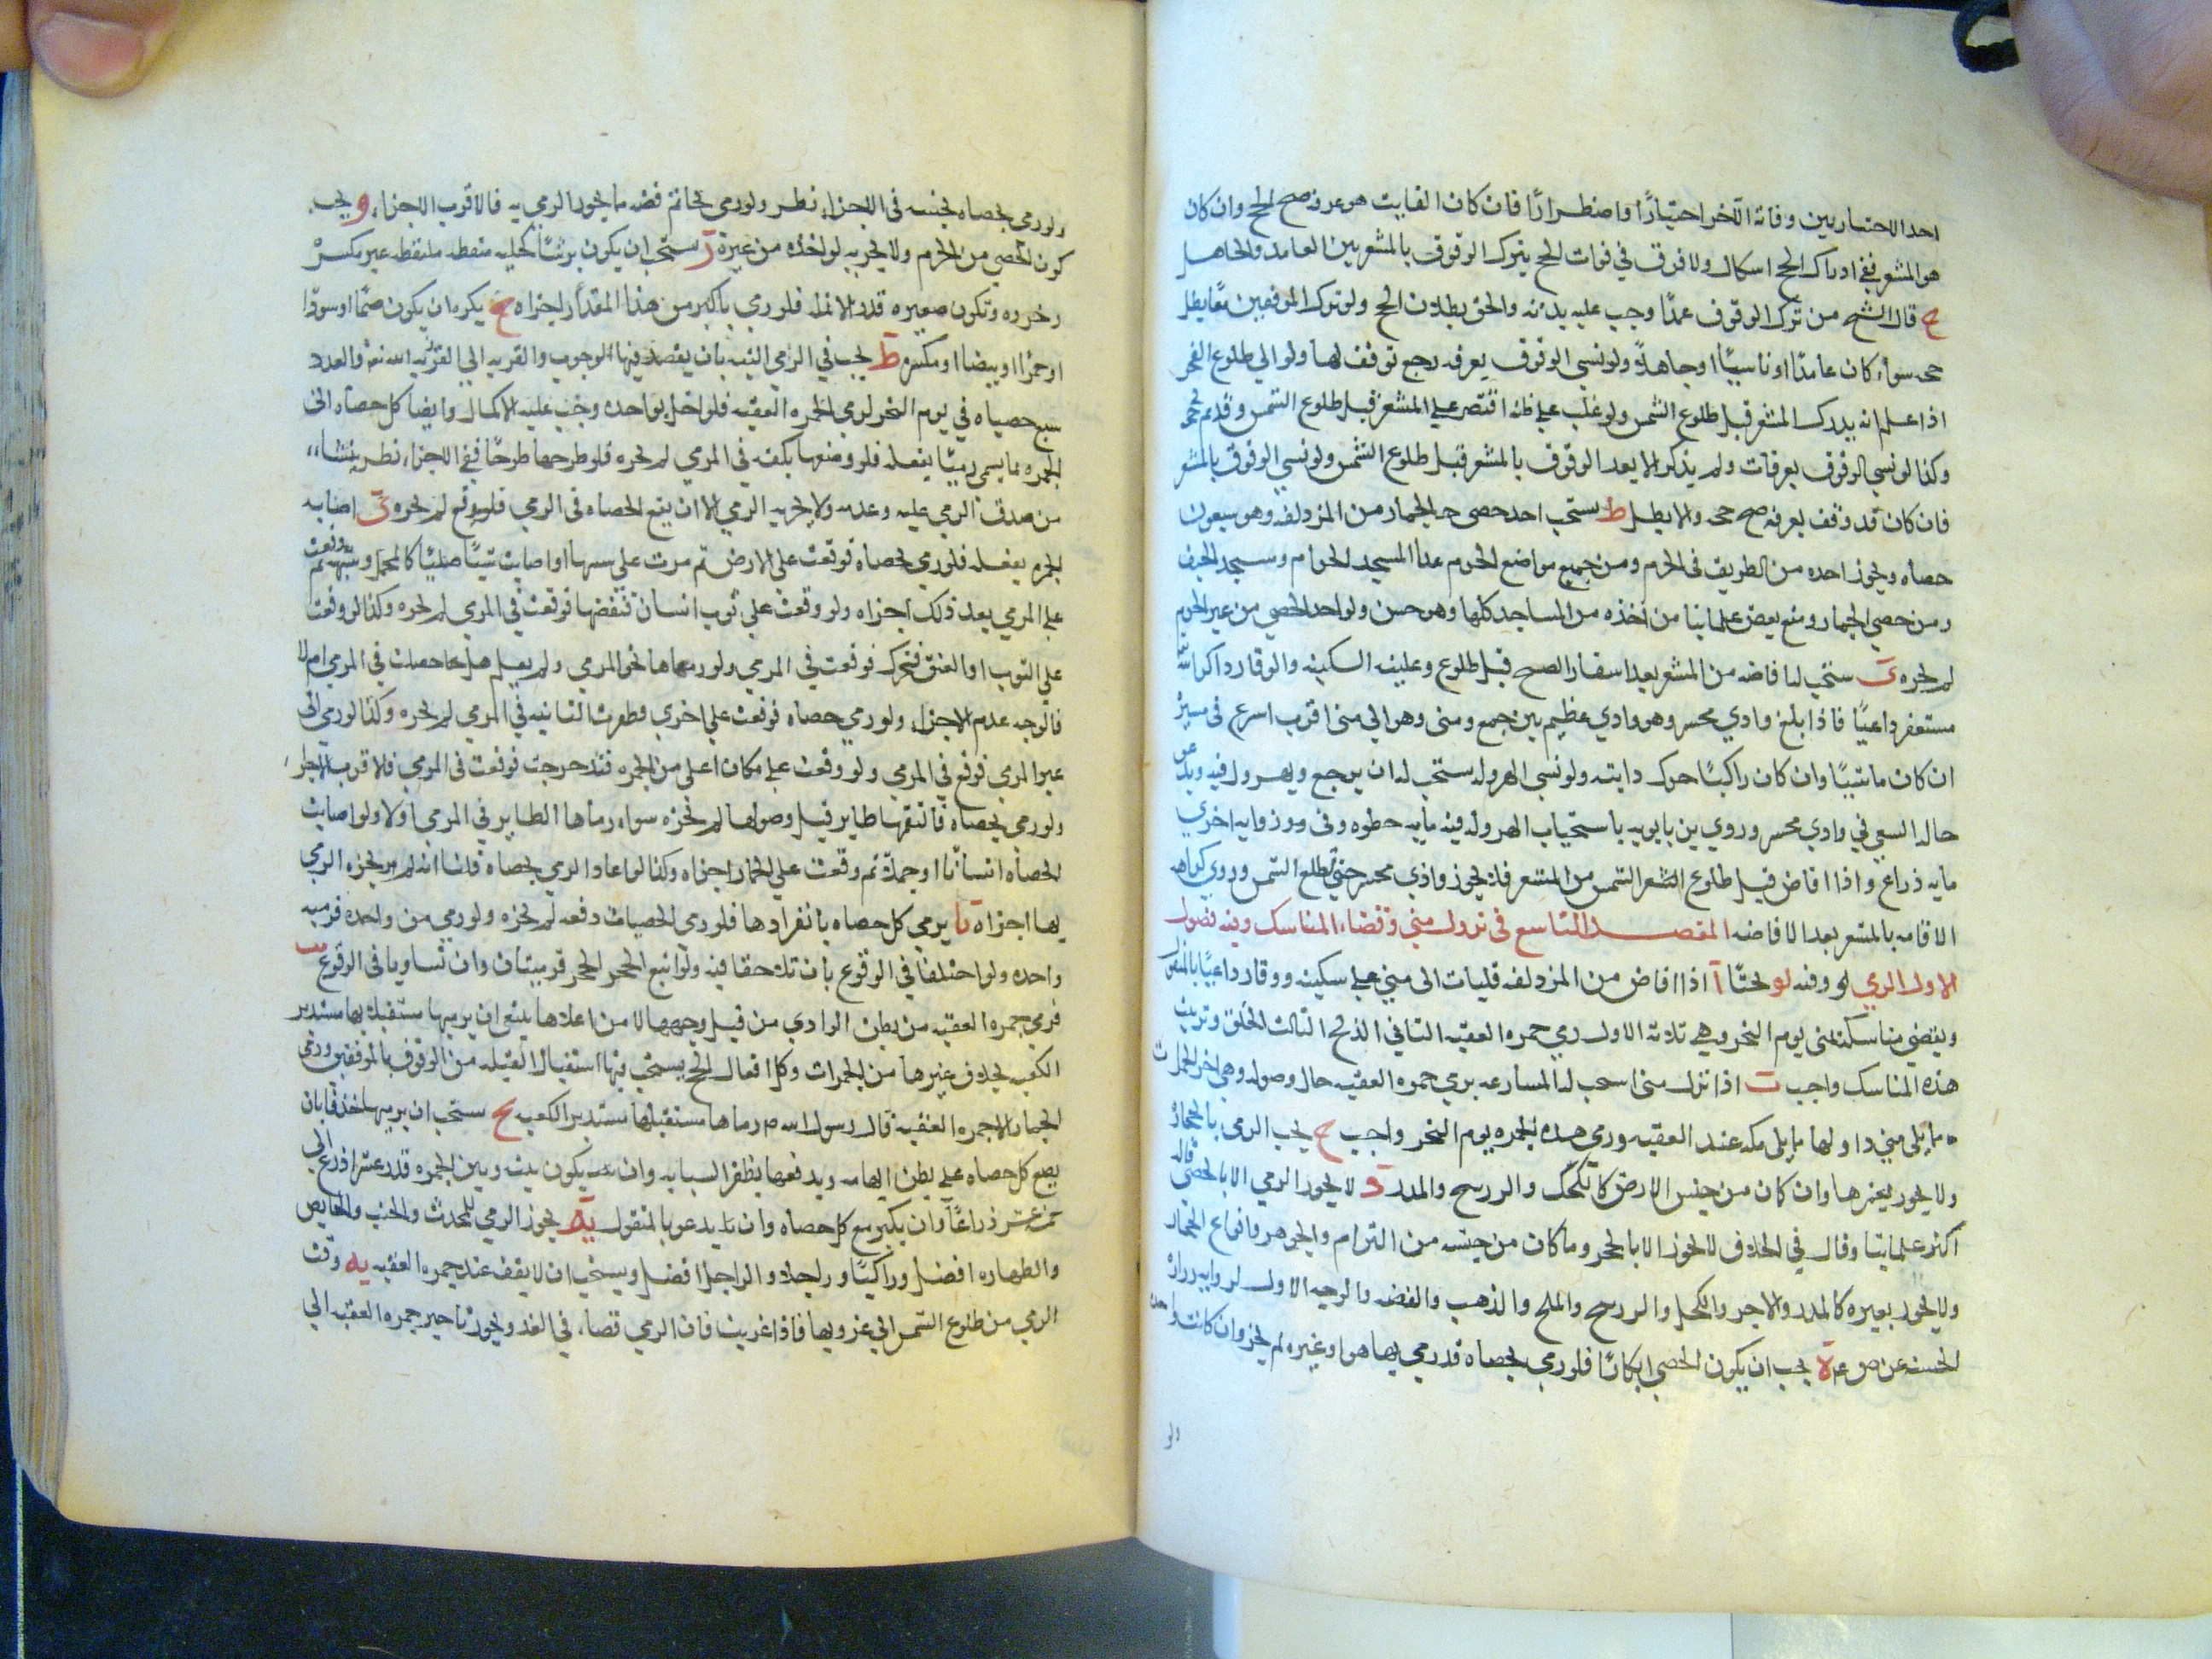 احد الاختياريين وفاته الآخر اختيارًا او اضطرارًا فان كان الفايت هو عرفه صح الحج وان كان
هو المشعر ففي ادراك الحج اشكال ولا فرق في فوات الحج بترك الوقوف بالمشعر بين العامد والجاهل
ح قال الشيخ من ترك الوقوف عمدًا وجب عليه بدنه والحق بطلان الحج ولو ترك الموقفين معًا بطل
حجه سواء كان عامدًا او ناسيًا او جاهلاً ولو نسي الوقوف بعرفه رجع توقف لها ولو الي طلوع الفجر
اذا علم انه يدرك المشعر قبل طلوع الشمس ولو غلب علي ظنه اقتصر علي المشعر قبل طلوع الشمس وقد تم حجه
وكذا لو نسي الوقوف بعرفات ولم يذكر الا بعد الوقوف بالمشعر قبل طلوع الشمس ولو نسي الوقوف بالمشعر
فان كان قد وقف بعرفه صح حجه والا بطل ط يستحب اخذ حصى الجمار من المزدلفه وهو سبعون
حصاه ويجوز اخذه من الطريق في الحرم ومن جميع مواضع الحرم عدا المسجد الحرام ومسجد الخيف
ومن حصي الجمار ومنع بعض علمائنا من اخذه من المساجد كلها وهو حسن ولو اخذ الحصي من غير الحرم
لم يجزه ى يستحب له افاضه من المشعر بعد اسفار الصبح قبل طلوع وعليه السكينه والوقار ذاكرا لله
مستغفر داعيًا فاذا بلغ وادي محسر وهو وادي عظيم بين جمع ومنى وهو الي منى اقرب اسرع في مسيره
ان كان ماشيًا وان كان راكبًا حرك دابته ولو نسي الهروله يستحب له ان يرجع ويهرول فيه ويدعو
حال السعي في وادي محسر وروي بن بابويه باستحباب الهروله فيه مايه خطوه وفى وروايه اخري
مايه ذراع واذا افاض قبل طلوع الشمس من المشعر فلا يجوز وادي محسر حتي تطلع الشمس وروي كراهه
الاقامه بالمشعر بعد الافاضه المقصد التاسع في نزول مني وقضاء المناسك وفيه فصول
الاول الرمي لو وفيه لو بحثًا آ اذا افاض من المزدلفه فليات الى مني علي سكينه ووقار داعيًا بالمنقول
ويقضي مناسكه بمنى يوم النحر وهي ثلاثه الاول رمي جمره العقبه الثاني الذبح الثالث الحلق وترتيب
هذه المناسك واجب ب اذا نزل منى استحب له المسارعه برمي جمره العقبه حال وصوله وهي اخر الجمرات
مما يلي مني واولها مما يلي مكه عند العقبه ورمى هذه الجمره يوم النحر واجب ح يجب الرمى بالحجاره
ولا يجوز بغيرها وان كان من جنس الارض كالكحل والزرنيخ والمدر و لا يجوز الرمي الا بالحصى قاله
اكثر علمائنا وقال في الخلاف لا يجوز الا بالحجر وما كان من جنسه من البرام والجوهر وانواع الحجار
ولا يجوز بغيره كالمدر والاجر والكحل والزرنيخ والملح والذهب والفضه والوجه الاول لروايه زراره
الحسنه عن ص ع ة يجب ان يكون الحصي ابكارًا فلو رمي بحصاه قد رمي بها هو او غيره لم يجز وان كانت
ولو
ولو رمى بحصاه نجسه في الاجزاء نظر ولو رمى بخاتم فضه مما يجوز الرمي به فالاقرب الاجزاء و يجب
كون الحصي من الحرم ولا يجزيه لو اخذه من غيره ز يستحب ان يكون برشًا كحليه منقطه ملتقطه غير مكسره
رخوه وتكون صغيره قدر الانمله فلو رمي باكبر من هذا المقدار اجزاه ح يكره ان يكون صمًا او سودًا
او حمرًا او بيضا او مكسره ط يجب في الرمي النيه بان يقصد فيها الوجوب والقربه الي الله تعه والعدد
سبع حصياه في يوم النحر لرمي الجمره العقبه فلو اخل بواحده وجب عليه الاكمال وايضا كل حصاه الى
الجمره بما يسمى رميًا بفعله فلو وضعها بكفه في المرمي لم يجزه فلو طرحها طرحًا ففي الاجزاء نظر ينشاء
من صدق الرمي عليه وعدمه ولا يجزيه الرمي الا ان يقع الحصاه في المرمي فلو وقع لم يجزه ى اصابه
الجمره بفعله فلو رمي بحصاه فوقعت علي الارض ثم مرت علي سننها او اصابت شيئًا صلبًا كالمحمل وشبهه ثم وقعت
علي المرمي بعد ذلك اجزاه ولو وقعت علي ثوب انسان فنفضها فوقعت في المرمي لم يجزه وكذا لو وقعت
علي الثوب او العنق فتحرك فوقعت في المرمي ولو رماها نحو المرمي ولم يعلم هل حصلت في المرمي ام لا
فالوجه عدم الاجزاء ولو رمي حصاه فوقعت علي اخري وطفرت الثانيه في المرمي لم يجزه وكذا لو رمي الى
غير المرمي فوقع في المرمي ولو وقعت علي مكان اعلي من الجمره فتدحرجت فوقعت في المرمي فلاقرب الاجزاء
ولو رمي بحصاه فالتقمها طاير قبل وصولها لم يجزه سواء رماها الطاير في المرمي اولا ولو اصابت
الحصاه انسانًا او جملاً ثم وقعت علي الجمار اجزاه وكذا لو اعاد الرمي بحصاه
بها اجزاه يا يرمي كل حصاه بانفرادها فلو رمى الحصيات دفعه لم يجزه ولو رمي من واحده فرميه
واحده ولو اختلفا في الوقوع بان تلاحقا فيه ولو اتبع الحجر الحجر فرميتان وان تساويا في الوقوع يب
فرمي جمره العقبه من بطن الوادي من قبل وجهها لا من اعلاها ينبغ ان يرميها مستقبلا لها مستدبر
الكعبه بخلاف غيرها من الجمرات وكل افعال الحج يستحب فيها استقبال القبله من الوقوف بالموقفين ورمى
الجمار الا جمره العقبه قال رسول الله ص رماها مستقبلها مستدبر الكعبه ح يستحب ان يرميها خذفا بان
يضع كل حصاه علي بطن ابهامه ويدفعها بظفر السبابه وان يكون بينه وبين الجمره قدر عشر اذرع الي
خمسه عشر ذراعًا وان يكبر مع كل حصاه وان يدعو بالمنقول يد يجوز الرمي للمحدث والجنب والحايض
والطهاره افضل وراكبًا وراجلا والراجل افضل ويستحب ان لا يقف عند جمره العقبه يه وقت
الرمي من طلوع الشمس الي غروبها فاذا غربت فات الرمي قضاه في الغد ويجوز تاخير جمره العقبه الي